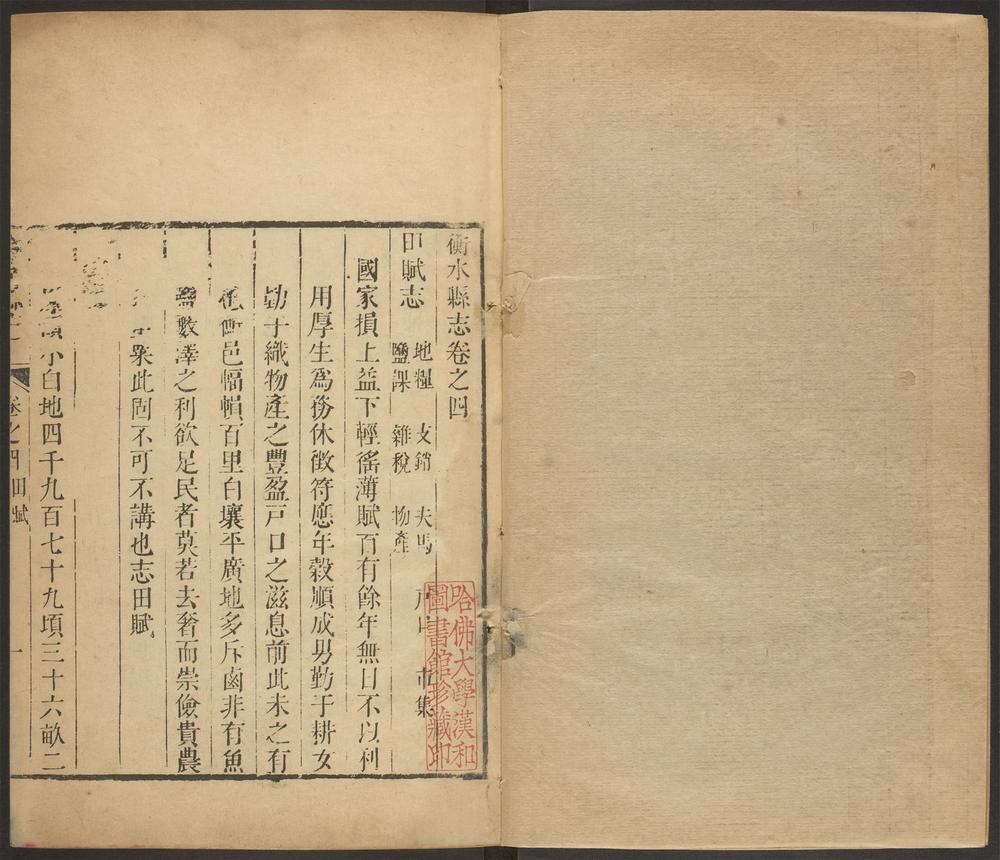 衡水縣志卷之四
田賦志
地糧 支銷 夫馬 戶口 市集
鹽課 雜稅 物產
國家損上益下輕徭薄賦百有餘年無日不以利
用厚生為務休徵符應年穀順成男勤于耕女
勤于織物產之豐盈戸口之滋息前此未之有
也衡邑幅幀百里白壤平廣地多斥鹵非有魚
鹽藪澤之利欲足民者莫若去奢而崇儉貴農
粟此固不可不講也志田賦
小白地四千九百七十九頃三十六畝二
卷之四 田賦 一
哈佛大學漢和
圖書館珍藏印